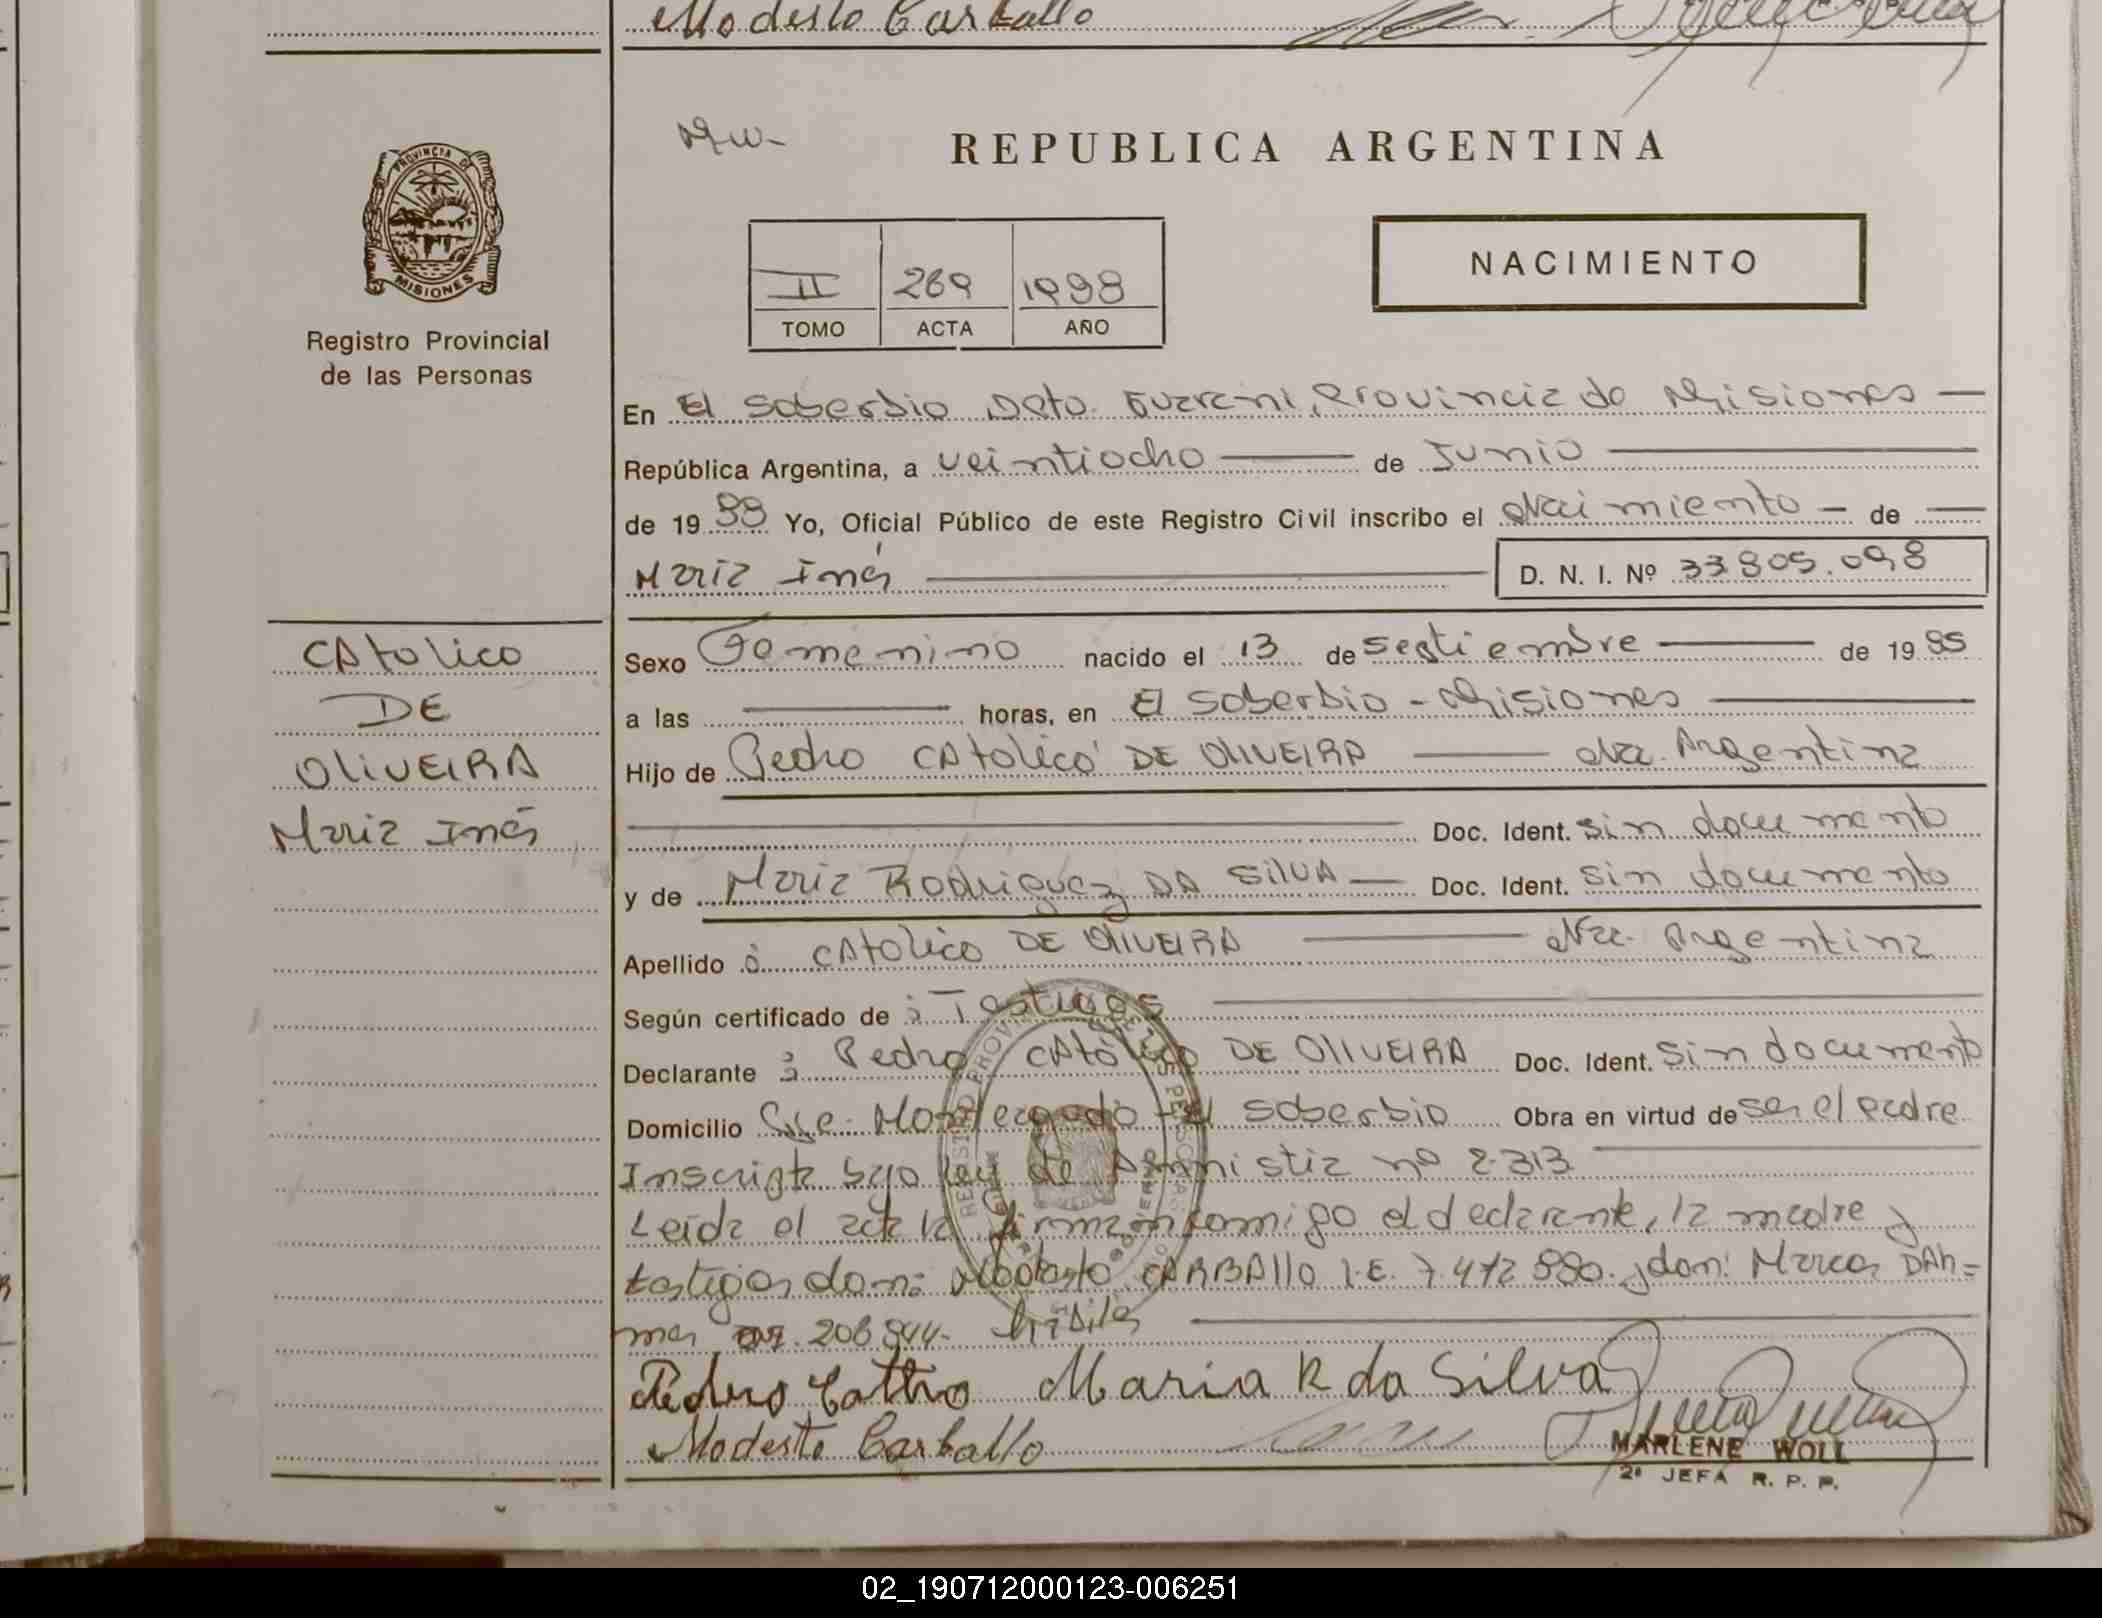 Modesto Carballo
PROVINCIA DE
MISIONES
Registro Provincial
de las Personas
CAtolico
DE
OliVEIRA
Maria Inés
REPUBLICA ARGENTINA
NACIMIENTO
II 269 1998
TOMO ACTA AÑO
En El Soberbio Dpto. Guarani, Provincia de Misiones —
República Argentina, a veintiocho — de Junio —
de 19 88 Yo, Oficial Público de este Registro Civil inscribo el Nacimiento — de —
Maria Inés — D. N. I. Nº 33.805.098
Sexo Femenino nacido el 13 de Septiembre — de 19 85
a las — horas, en El Soberbio - Misiones —
Hijo de Pedro CAtolico DE OliVEIRA — Nac. Argentina
— Doc. Ident. sin documento
y de Maria Rodriguez DA SilVA — Doc. Ident. sin documento
Apellido : CAtolico DE OliVEIRA — Nac. Argentina
Según certificado de : Testigos —
Declarante : Pedro CAtólico DE OliVEIRA Doc. Ident. sin documento
Domicilio Cje. Monteagudo - El Soberbio Obra en virtud de ser el padre
Inscripta bajo Ley de Amnistia nº 2.313 —
Leida el acta la firman conmigo el declarante, la madre y
testigos don: Modesto CARBAllO L.E. 7.472.880. y don: Marcos DAh=
mer 206.944.
Pedro Maria R da Silva
Modesto Carballo
MARLENE WOLL
2ª JEFA R. P. P.
02_190712000123-006251